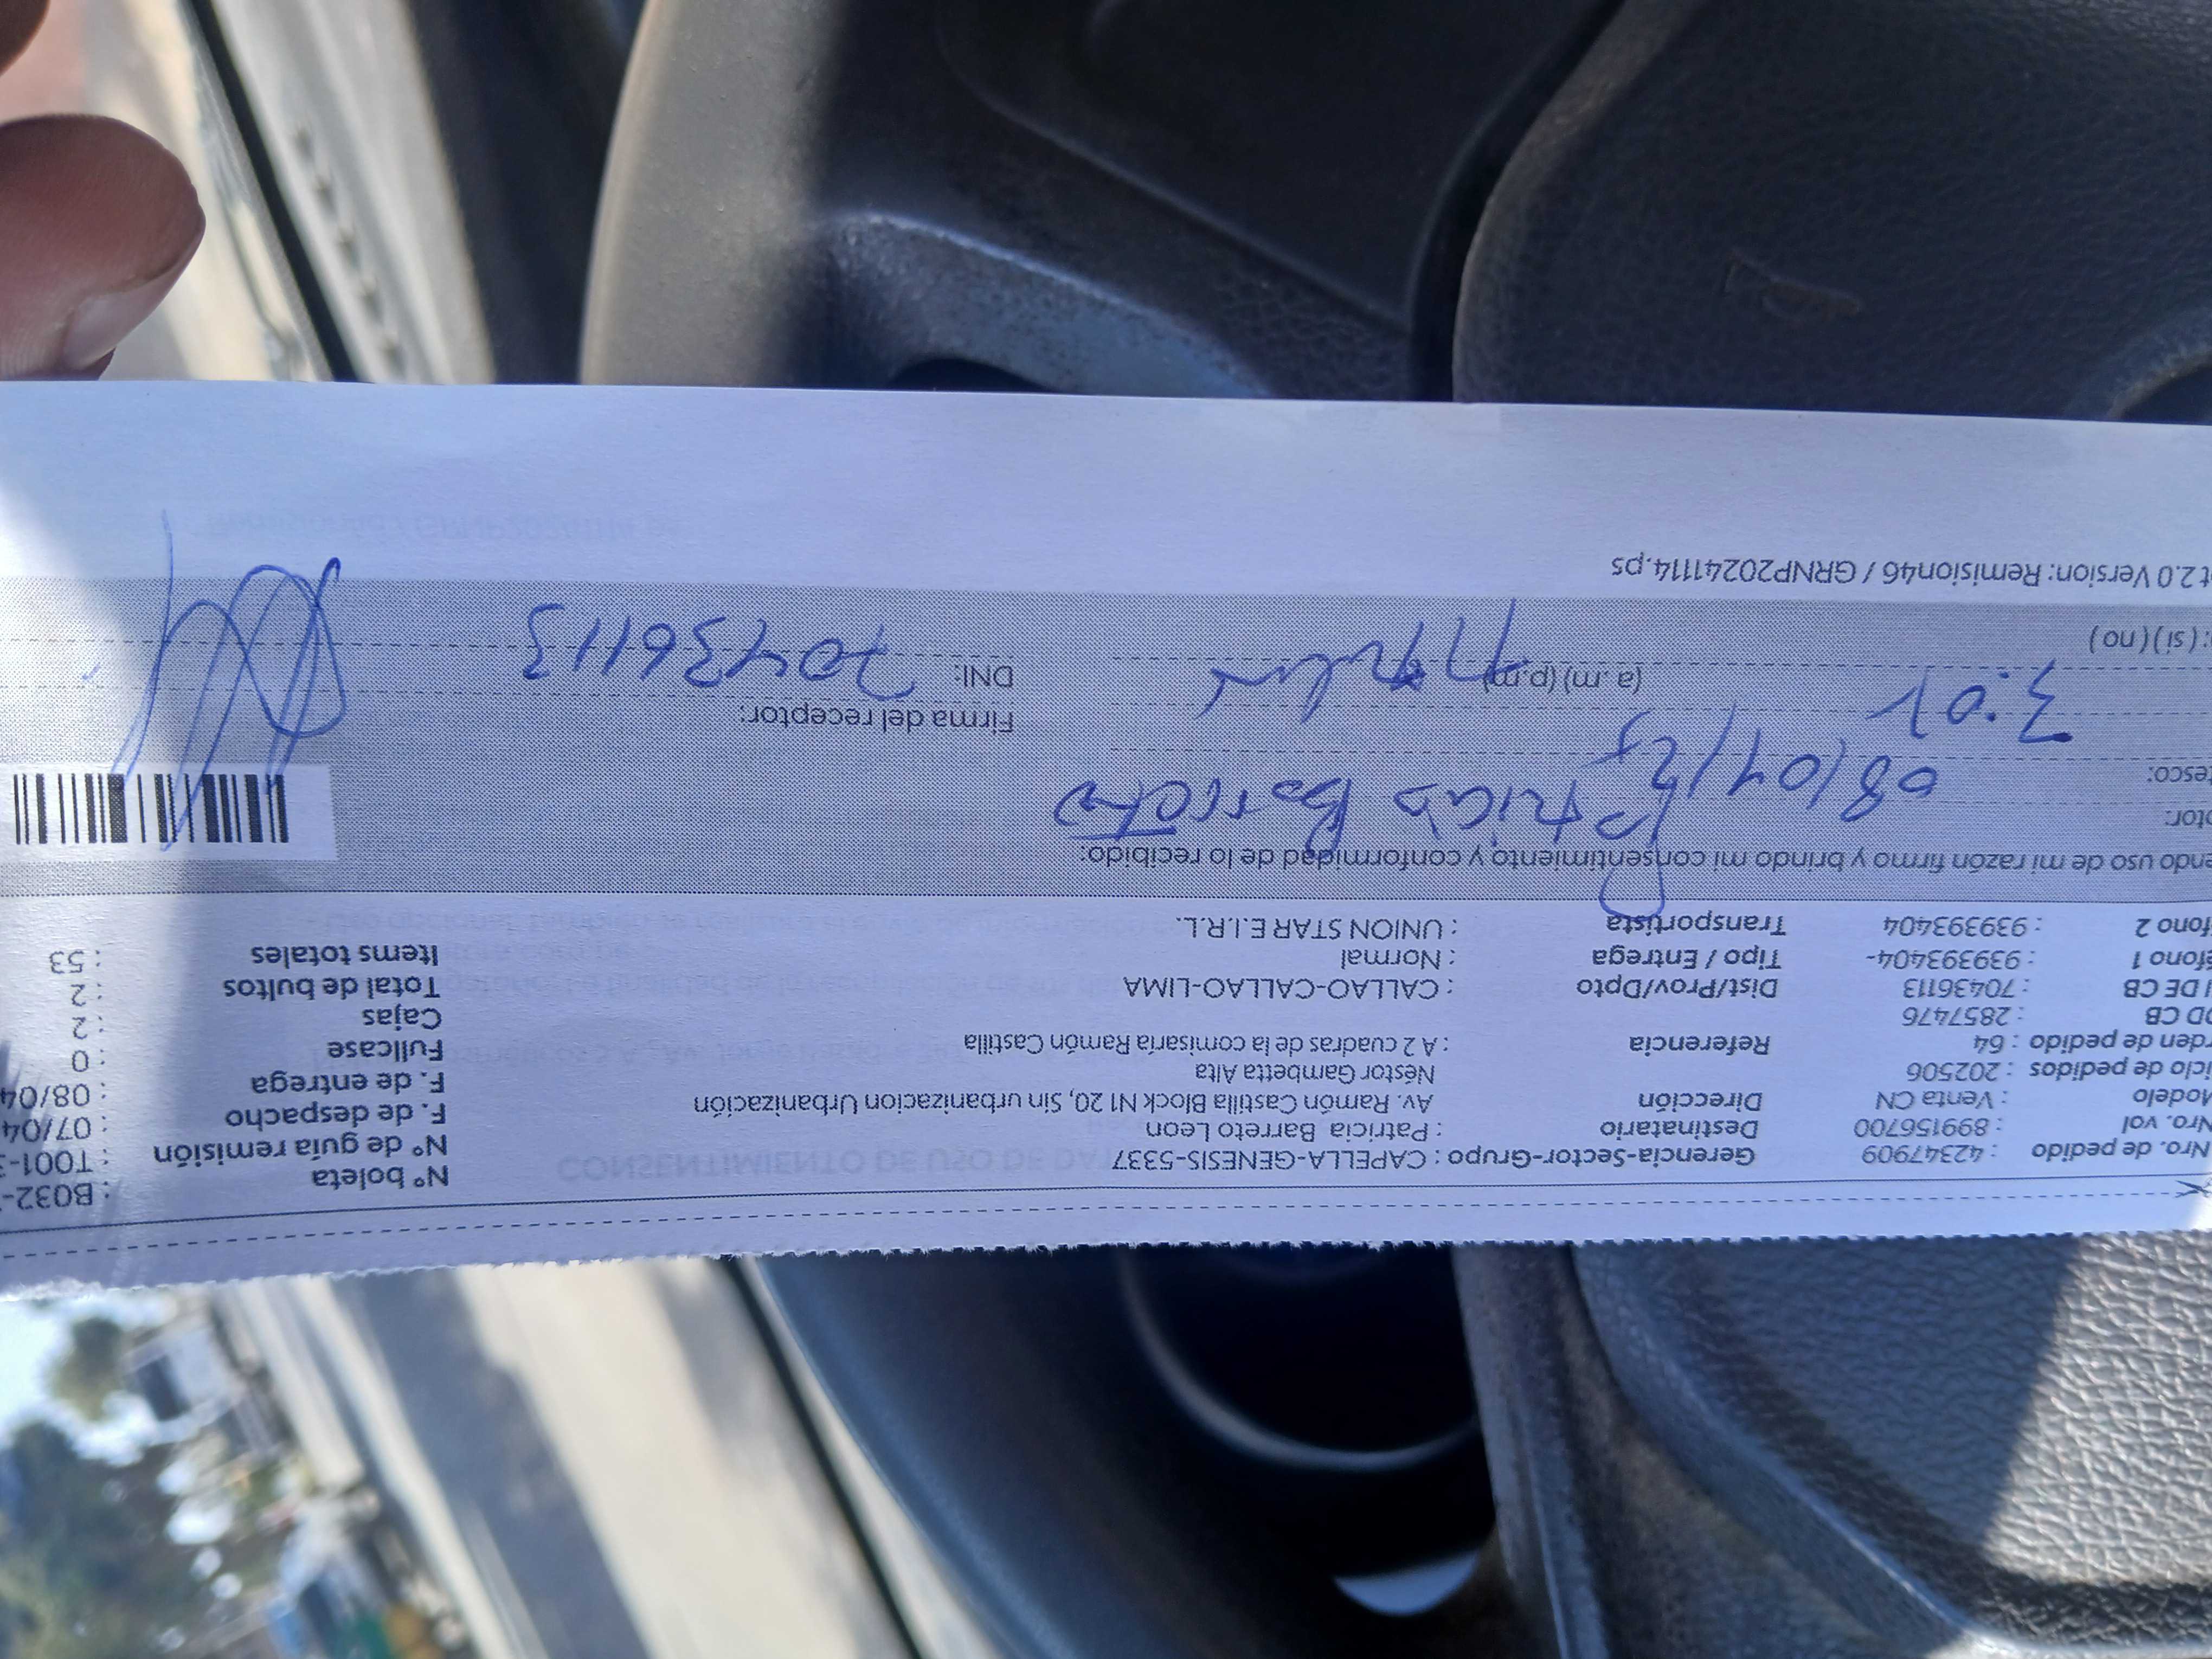 Nro. de pedido : 42347909 Gerencia-Sector-Grupo : CAPELLA-GENESIS-5337 N° boleta : B032-
Nro. vol : 899156700 Destinatario : Patricia Barreto Leon N° de guía remisión : T001-
Modelo : Venta CN Dirección Av. Ramón Castilla Block N1 20, Sin urbanizacion Urbanización F. de despacho : 07/04
iclo de pedidos : 202506 Néstor Gambetta Alta F. de entrega : 08/04
rden de pedido : 64 Referencia : A 2 cuadras de la comisaría Ramón Castilla Fullcase : 0
OD CB : 2857476 Cajas : 2
I DE CB : 70436113 Dist/Prov/Dpto : CALLAO-CALLAO-LIMA Total de bultos : 2
éfono 1 : 939393404- Tipo / Entrega : Normal Items totales : 53
fono 2 : 939393404 Transportista : UNION STAR E.I.R.L.
endo uso de mi razón firmo y brindo mi consentimiento y conformidad de lo recibido:
ptor: Patricia Barreto
tesco: 08/04/25
Firma del receptor:
3:01 (a. m) (p.m) DNI: 70436113
: ( si ) ( no )
t2.0 Version: Remision46 / GRNP20241114.ps